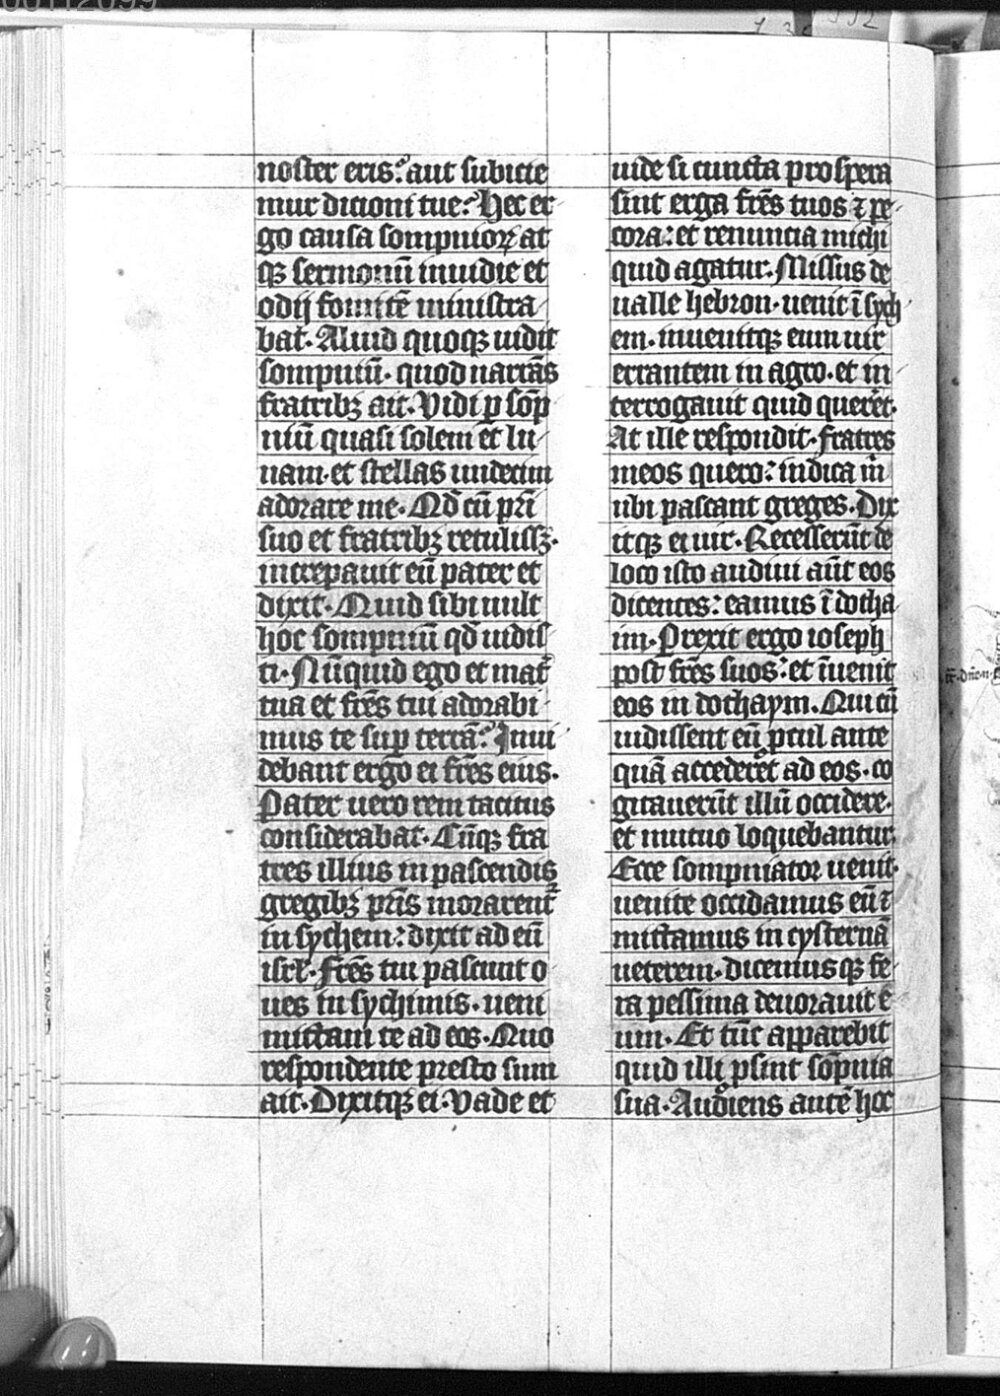 noster eris? aut subicie
mur dicioni tue? Hec er
go causa sompnioꝝ at
qꝫ sermonū inuidie et
odij fomitē ministra
bat. Aliud quoqꝫ uidit
sompniū. quod narrās
fratribꝫ ait. Vidi ꝑ sōp
niū quasi solem et lu
nam. et stellas undecim
adorare me. Qd̄ cū pr̄i
suo et fratribꝫ retulissꝫ.
increpauit eū pater et
dixit. Quid sibi uult
hoc sompniū qd̄ uidis
ti. Nūquid ego et mat̄
tua et fr̄es tui adorabi
mus te suꝑ terrā? Inui
debant ergo ei fr̄es eius.
Pater uero rem tacitus
considerabat. Cūqꝫ fra
tres illius in pascendis
gregibꝫ pr̄is morarent᷑
in sychem: dixit ad eū
isrl̄. Fr̄es tui pascunt o
ues in sychimis. ueni
mittam te ad eos. Quo
respondente presto sum
ait. Dixitqꝫ ei. Vade et
uide si cuncta prospera
sint erga fr̄es tuos ⁊ pe
cora: et renuncia michi
quid agatur. Missus de
ualle hebron. uenit ī sych
em. inuenitqꝫ eum uir
errantem in agro. et in
terrogauit quid quereret.
At ille respondit. Fratres
meos quero: indica m̄
ubi pascant greges. Dix
itqꝫ ei uir. Recesserūt de
loco isto audiui aūt eos
dicentes: eamus ī dotha
im. Perrexit ergo ioseph
post fr̄es suos: et īuenit
eos in dothaym. Qui cū
uidissent eū ꝓcul ante
quā accederet ad eos. co
gitauerūt illū occidere.
et mutuo loquebantur.
Ecce sompniator uenit.
uenite occidamus eū ⁊
mittamus in cysternā
ueterem. dicemusqꝫ fe
ra pessima deuorauit e
um. Et tūc apparebit
quid illi ꝓsint sōpnia
sua. Audiens autē hoc